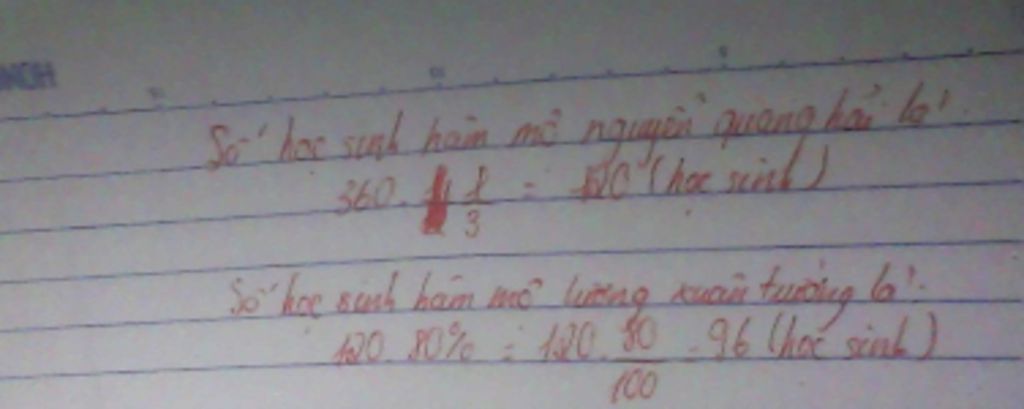 NGH
Số học sinh hâm mộ nguyễn quang hải là:
360 . 1/3 = 120 (học sinh)
Số học sinh hâm mộ lương xuân trường là:
120 . 80% = 120 . 80/100 = 96 (học sinh)